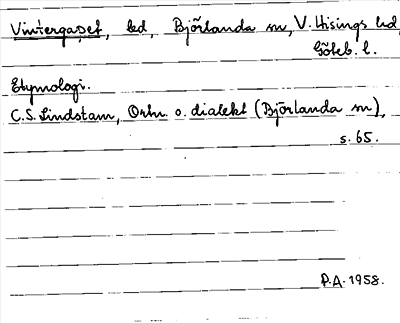 Vintergapet, bd, Björlanda sn, V. Hisings hd,
Göteb. l.
Etymologi.
C.S. Lindstam, Ortn. o. dialekt (Björlanda sn),
s. 65.
P.A. 1958.